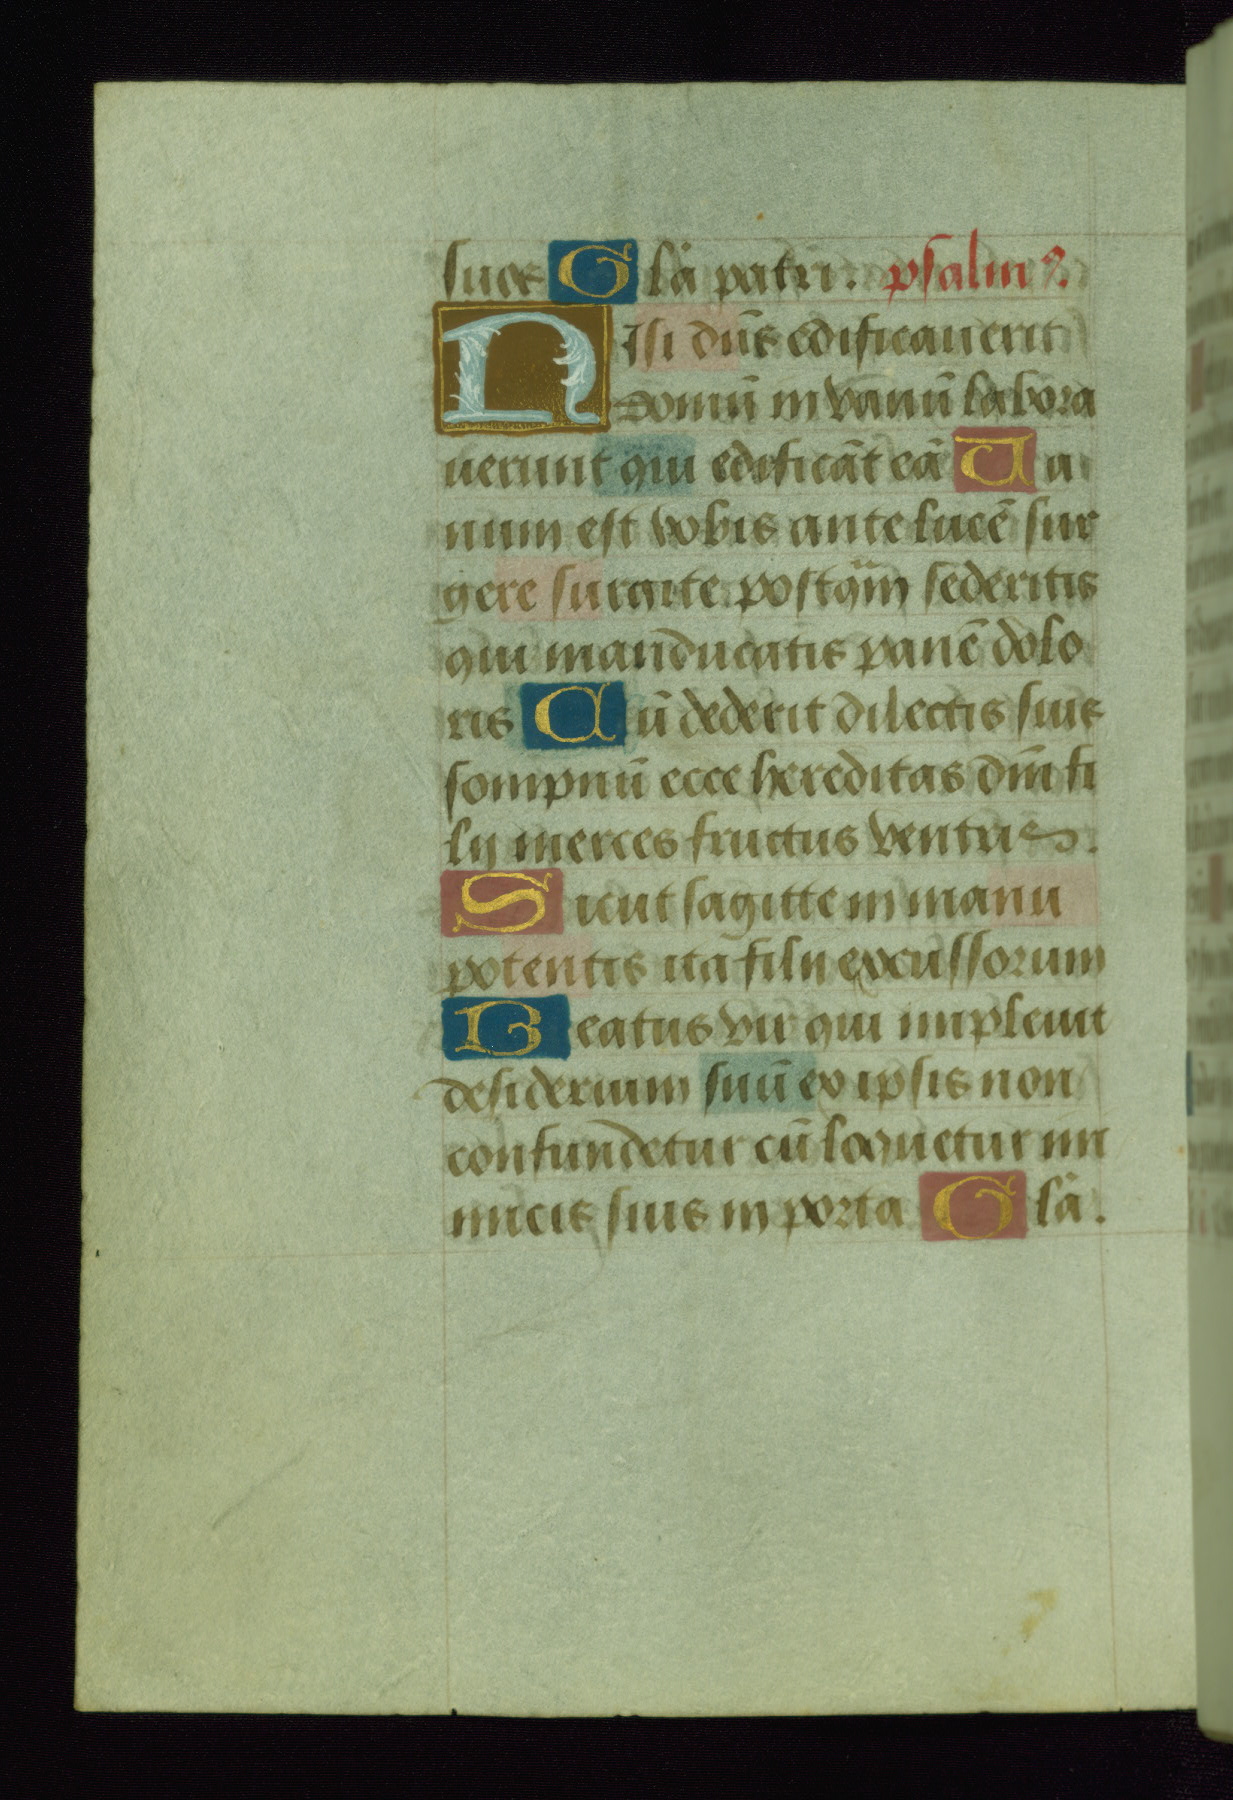 suos Glã patri. psalm⁹.
Nisi dñs edificauerit
domũ in vanũ labora
uerunt qui edificãt eã Ua
num est vobis ante lucẽ sur
gere surgite postq̃m sederitis
qui manducatis panẽ dolo
ris Cũ dederit dilectis suis
sompnũ ecce hereditas dñi fi
lij merces fructus ventris.
Sicut sagitte in manu
potentis ita filii excussorum
Beatus vir qui impleuit
desiderium suũ ex ipsis non
confundetur cũ loquetur ini
micis suis in porta Glã.